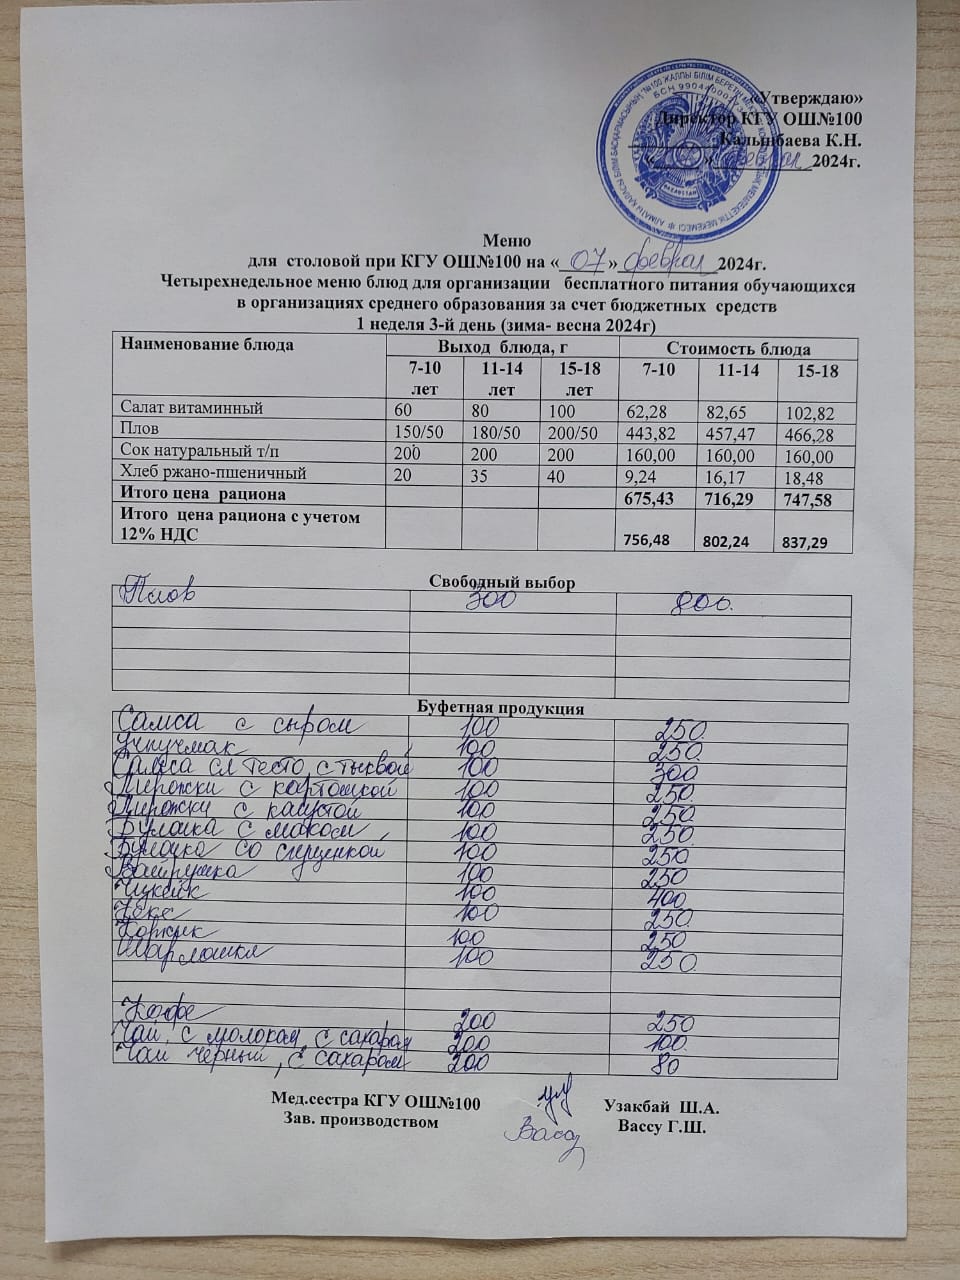 «Утверждаю»
Директор КГУ ОШ№100
Калынбаева К.Н.
2024г.
Меню
для столовой при КГУ ОШ№100 на «07» феврал 2024г.
Четырехнедельное меню блюд для организации бесплатного питания обучающихся
в организациях среднего образования за счет бюджетных средств
1 неделя 3-й день (зима- весна 2024г)
Наименование блюда Выход блюда, г Стоимость блюда
7-10 лет 11-14 лет 15-18 лет 7-10 11-14 15-18
Салат витаминный 60 80 100 62,28 82,65 102,82
Плов 150/50 180/50 200/50 443,82 457,47 466,28
Сок натуральный т/п 200 200 200 160,00 160,00 160,00
Хлеб ржано-пшеничный 20 35 40 9,24 16,17 18,48
Итого цена рациона 675,43 716,29 747,58
Итого цена рациона с учетом
12% НДС 756,48 802,24 837,29
Свободный выбор
Плов 300 800.
Буфетная продукция
Самса с сыром 100 250.
Учпучмак 100 250.
Самса сл тесто, с тыквой 100 300
Пирожки с картошкой 100 250.
Пирожки с капустой 100 250.
Булочка с маком 100 250.
Булочка со сгущенкой 100 250
Ватрушка 100 250
Чизкейк 100 400
Кекс 100 250.
Коржик 100 250
100 250.
Кофе 200 250
Чай с молоком, с сахаром 200 100.
Чай черный, с сахаром 200 80
Мед.сестра КГУ ОШ№100 Узакбай Ш.А.
Зав. производством Вассу Г.Ш.